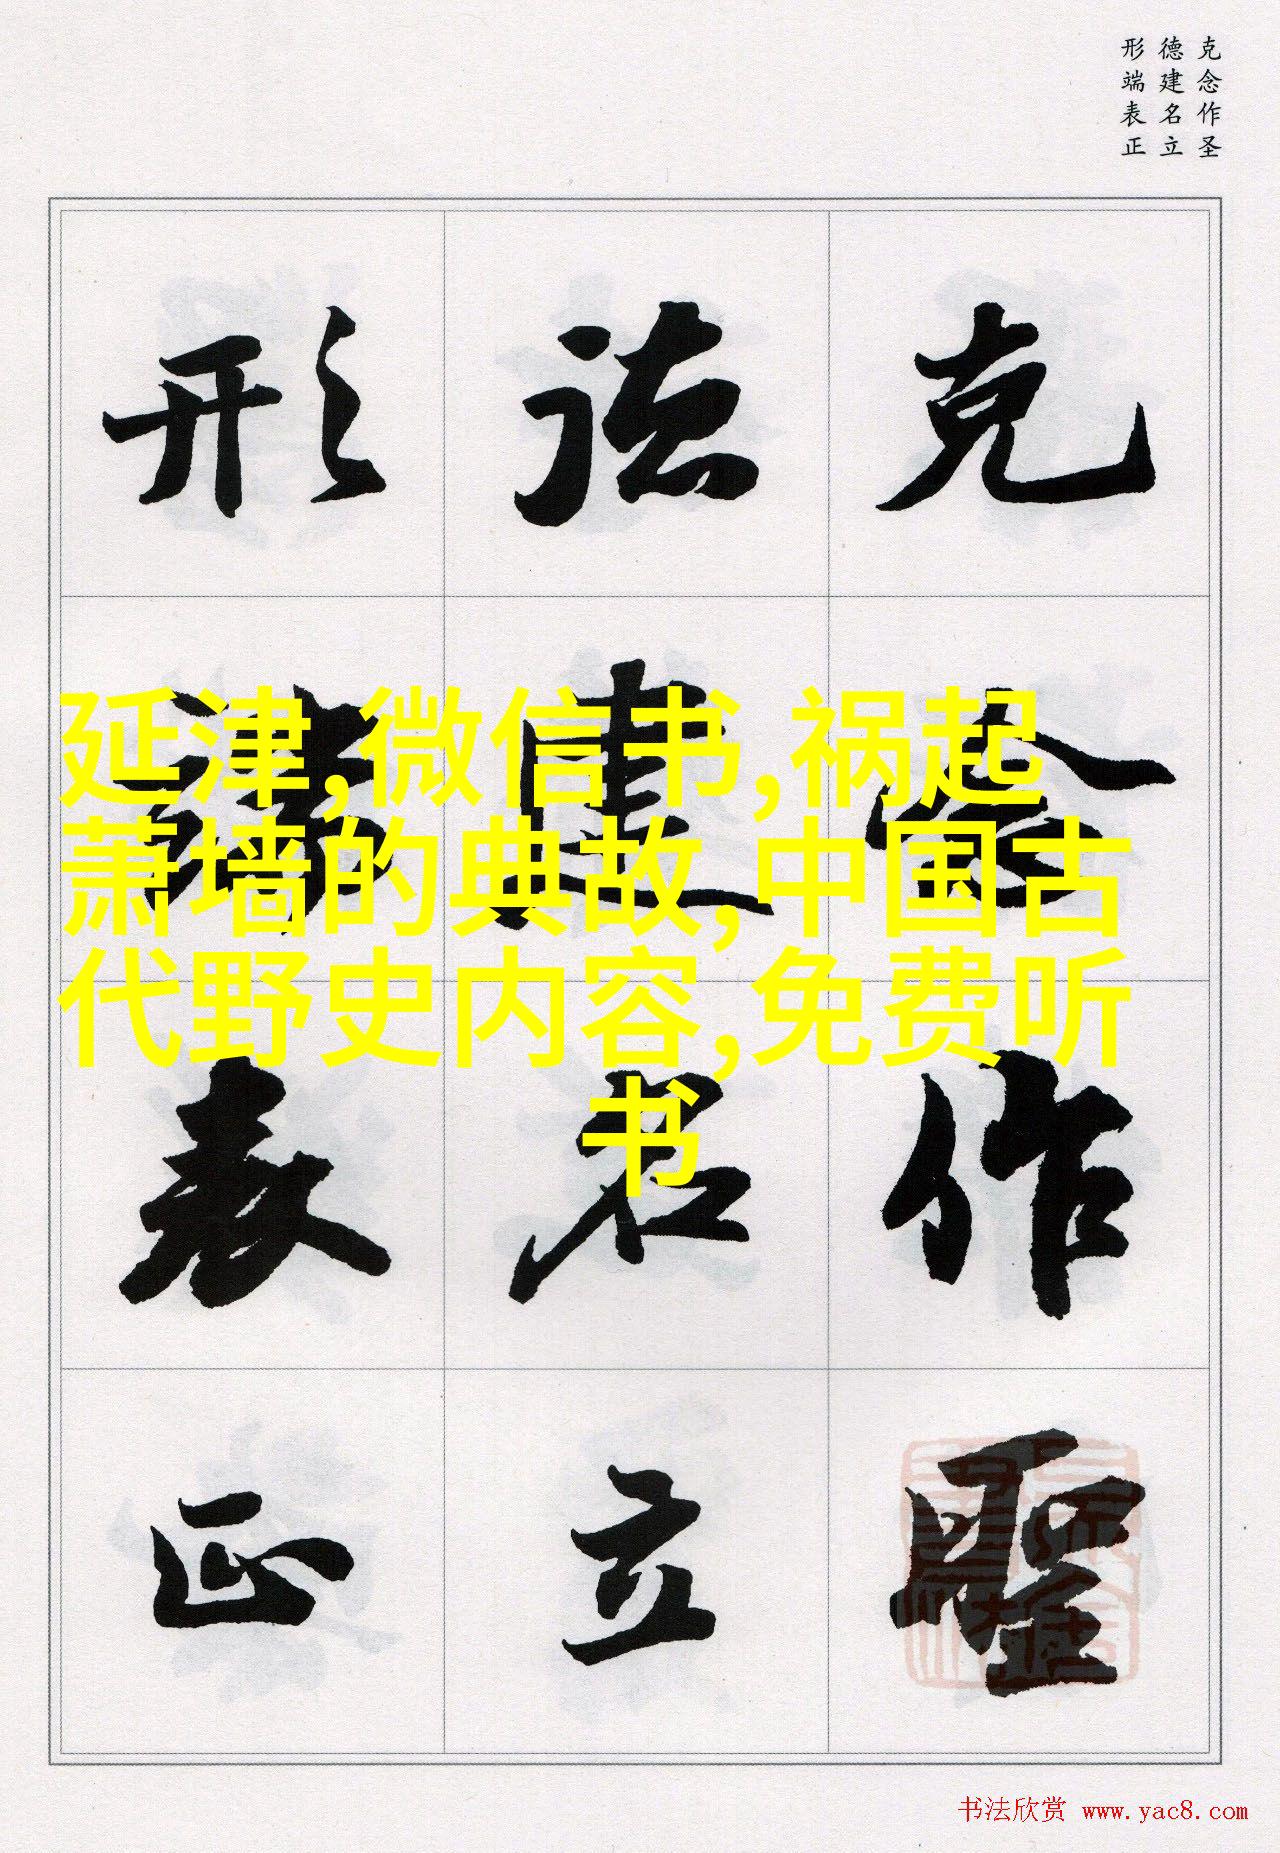 克念作圣
德建名立
形端表正
克念作聖
德建名立
形端表正
延津,微信书,祸起
萧墙的典故,中国古
代野史内容,免费听
书
书法欣赏 www.yac8.com